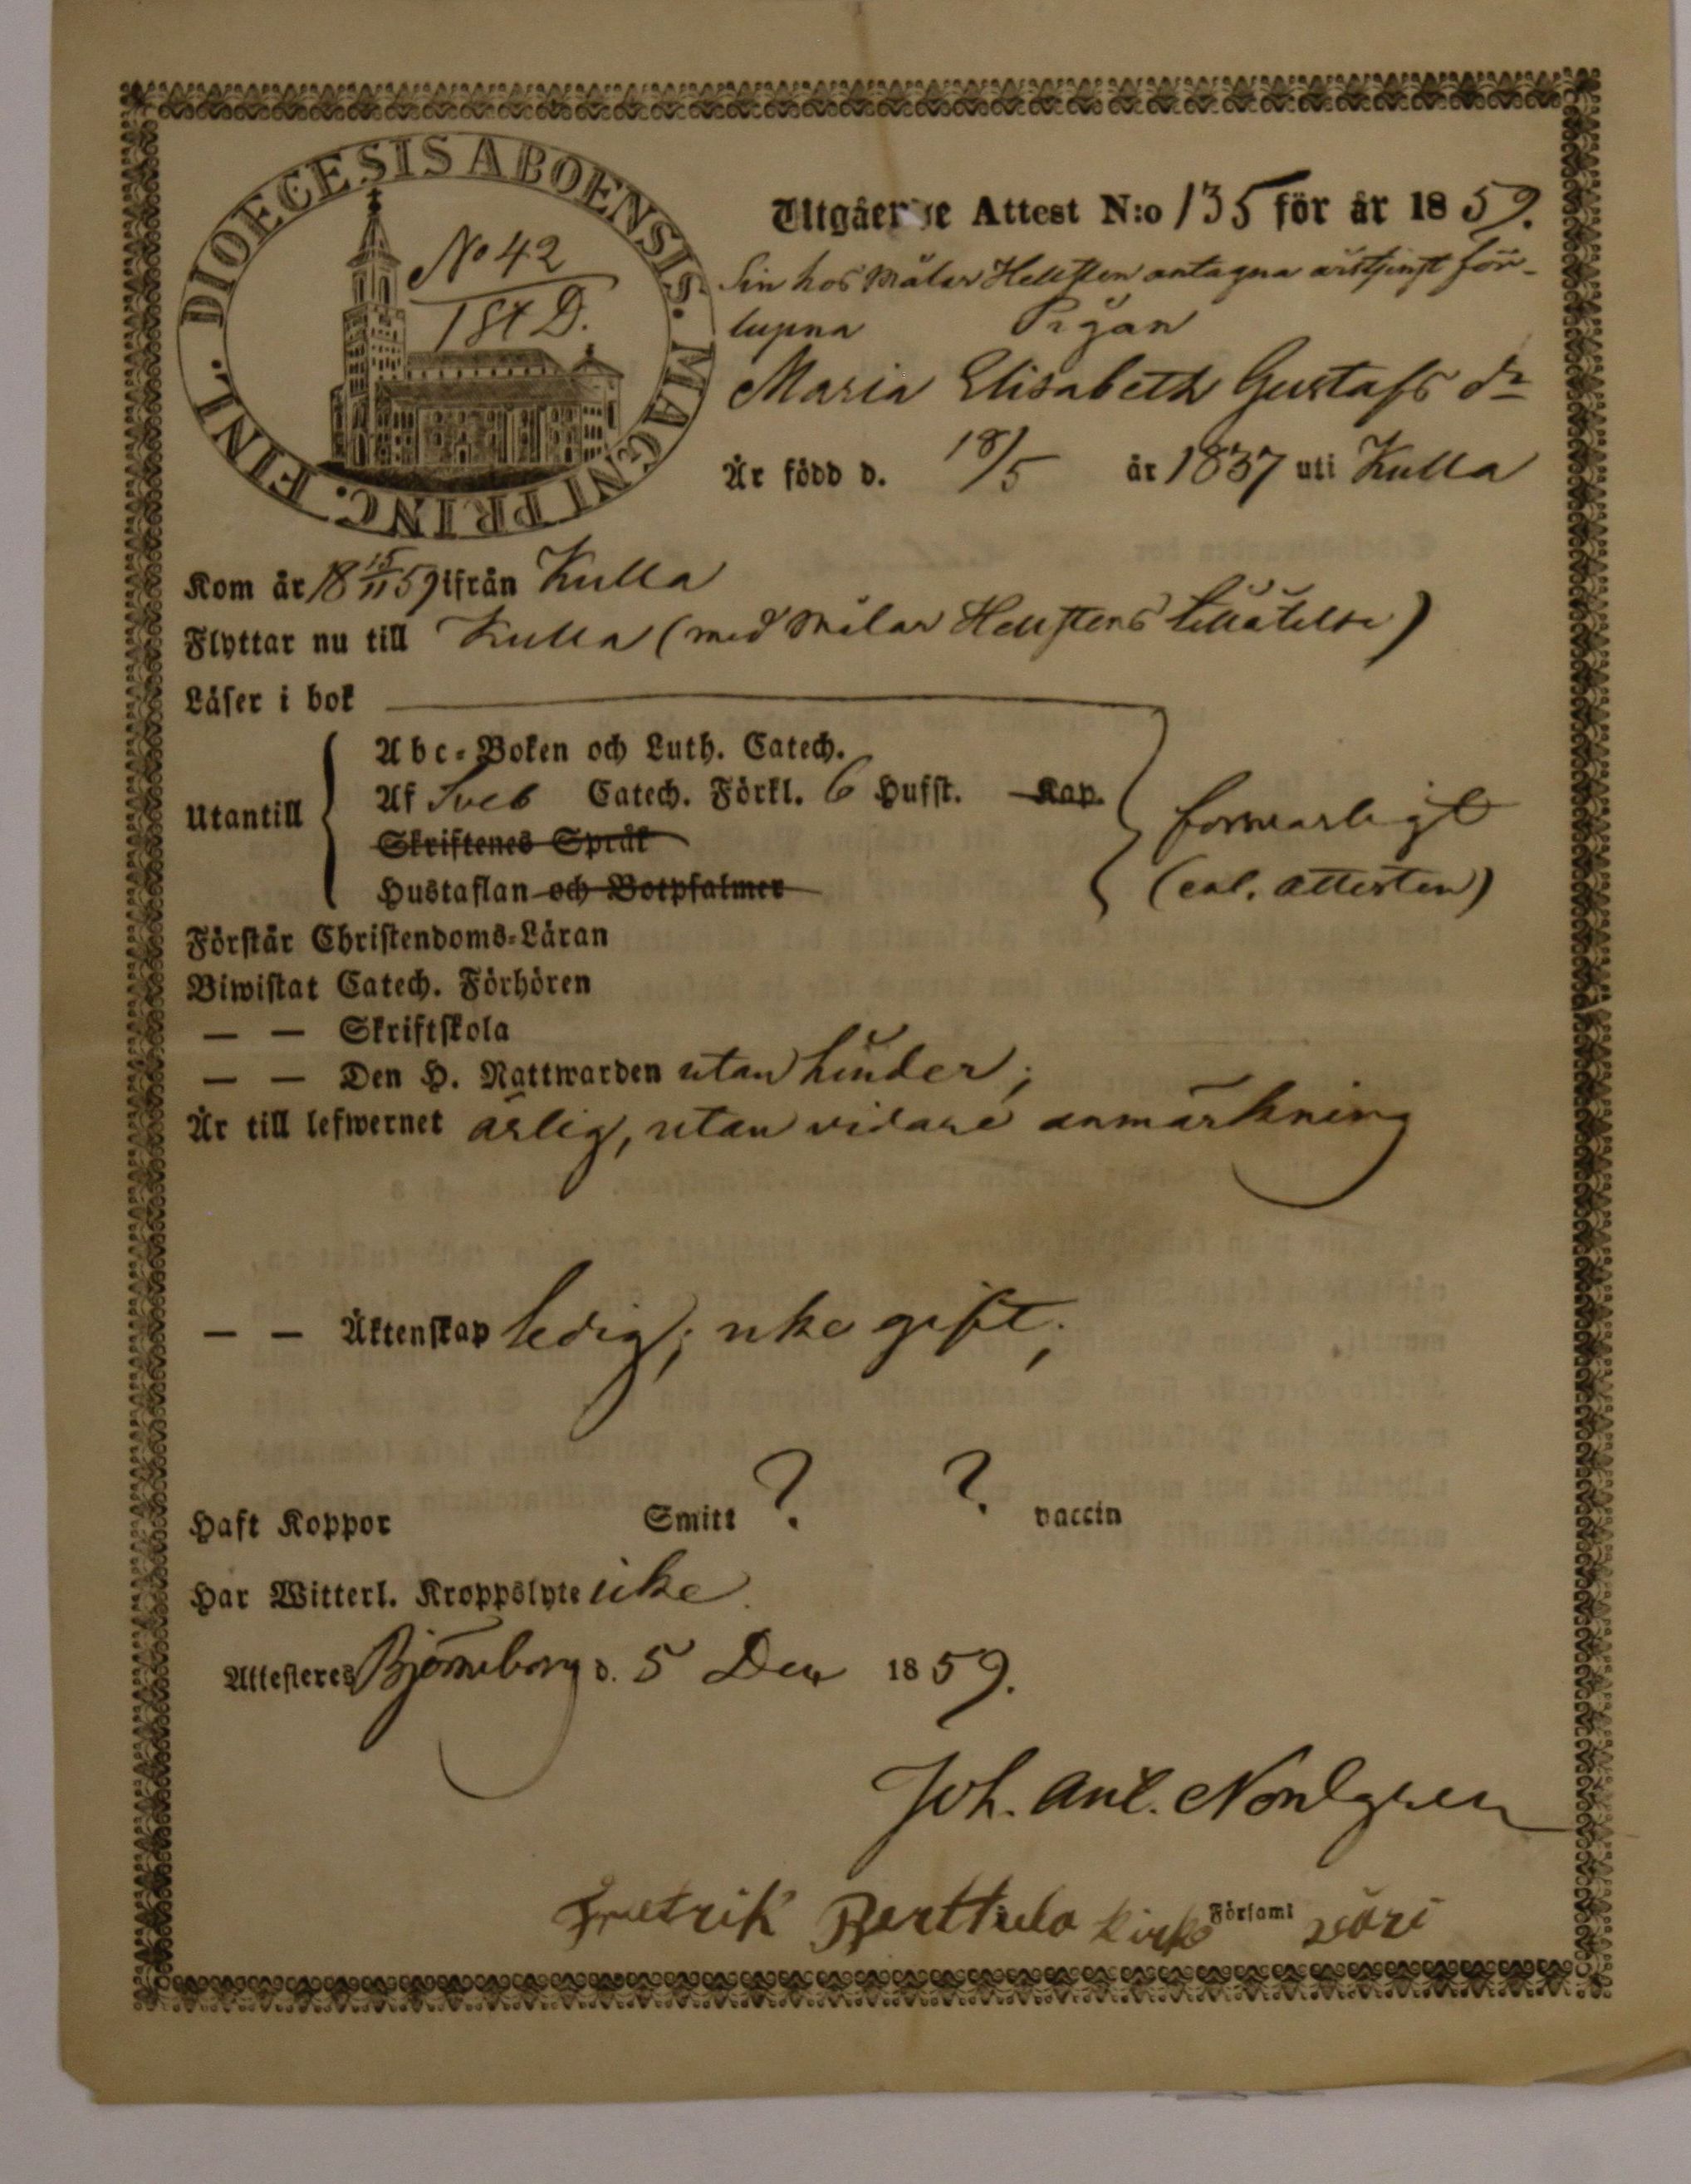 DIOECESIS ABOENSIS. MAGNI PRINC. FINL.
No 42
18 4/1 D.
Utgående Attest N:o 135 för år 1859.
Sin hos Målar Hellsten antagna årstjenst för-
lupna Pigan
Maria Elisabeth Gustafs dr
Är född d. 18/5 år 1837 uti Kulla
Kom år 18 15/11 59 ifrån Kulla
Flyttar nu till Kulla (med Målar Hellstens tillåtelse)
Läser i bok
Utantill
Abc-Boken och Luth. Catech.
Af Sveb Catech. Förkl. 6 Hufst. Kap.
Skriftenes Språk
Hustaflan och Botpsalmer
försvarligt
(enl. attesten)
Förstår Christendoms-Läran
Biwistat Catech. Förhören
— — Skriftskola
— — Den H. Nattwarden utan hinder;
Är till lefwernet ärlig, utan vidare anmärkning
— — Äktenskap ledig; icke gift;
Haft Koppor Smitt ? ? vaccin
Har Witterl. Kroppslyte icke.
Attesteres Björneborg d. 5 Dec 1859.
Joh. Nordgren
Fretrik Perttula Församl